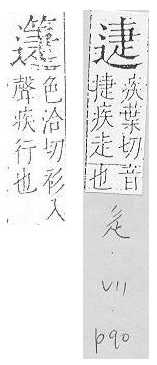 疾葉切音
捷疾走也
辵
·
VII
·
p90
色洽切衫入
聲疾行也